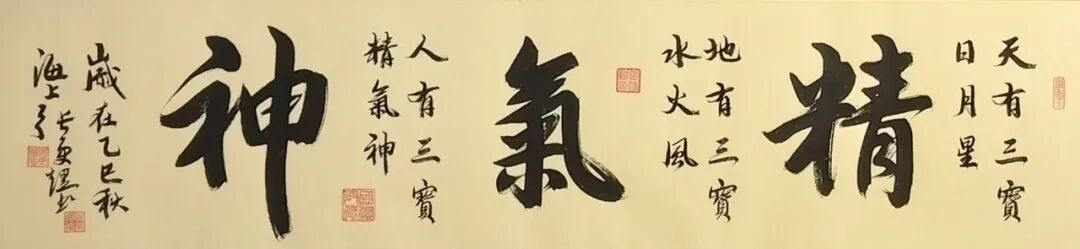 天有三寶
日月星
精
地有三寶
水火風
氣
人有三寶
精氣神
神
歲在乙巳秋
海上